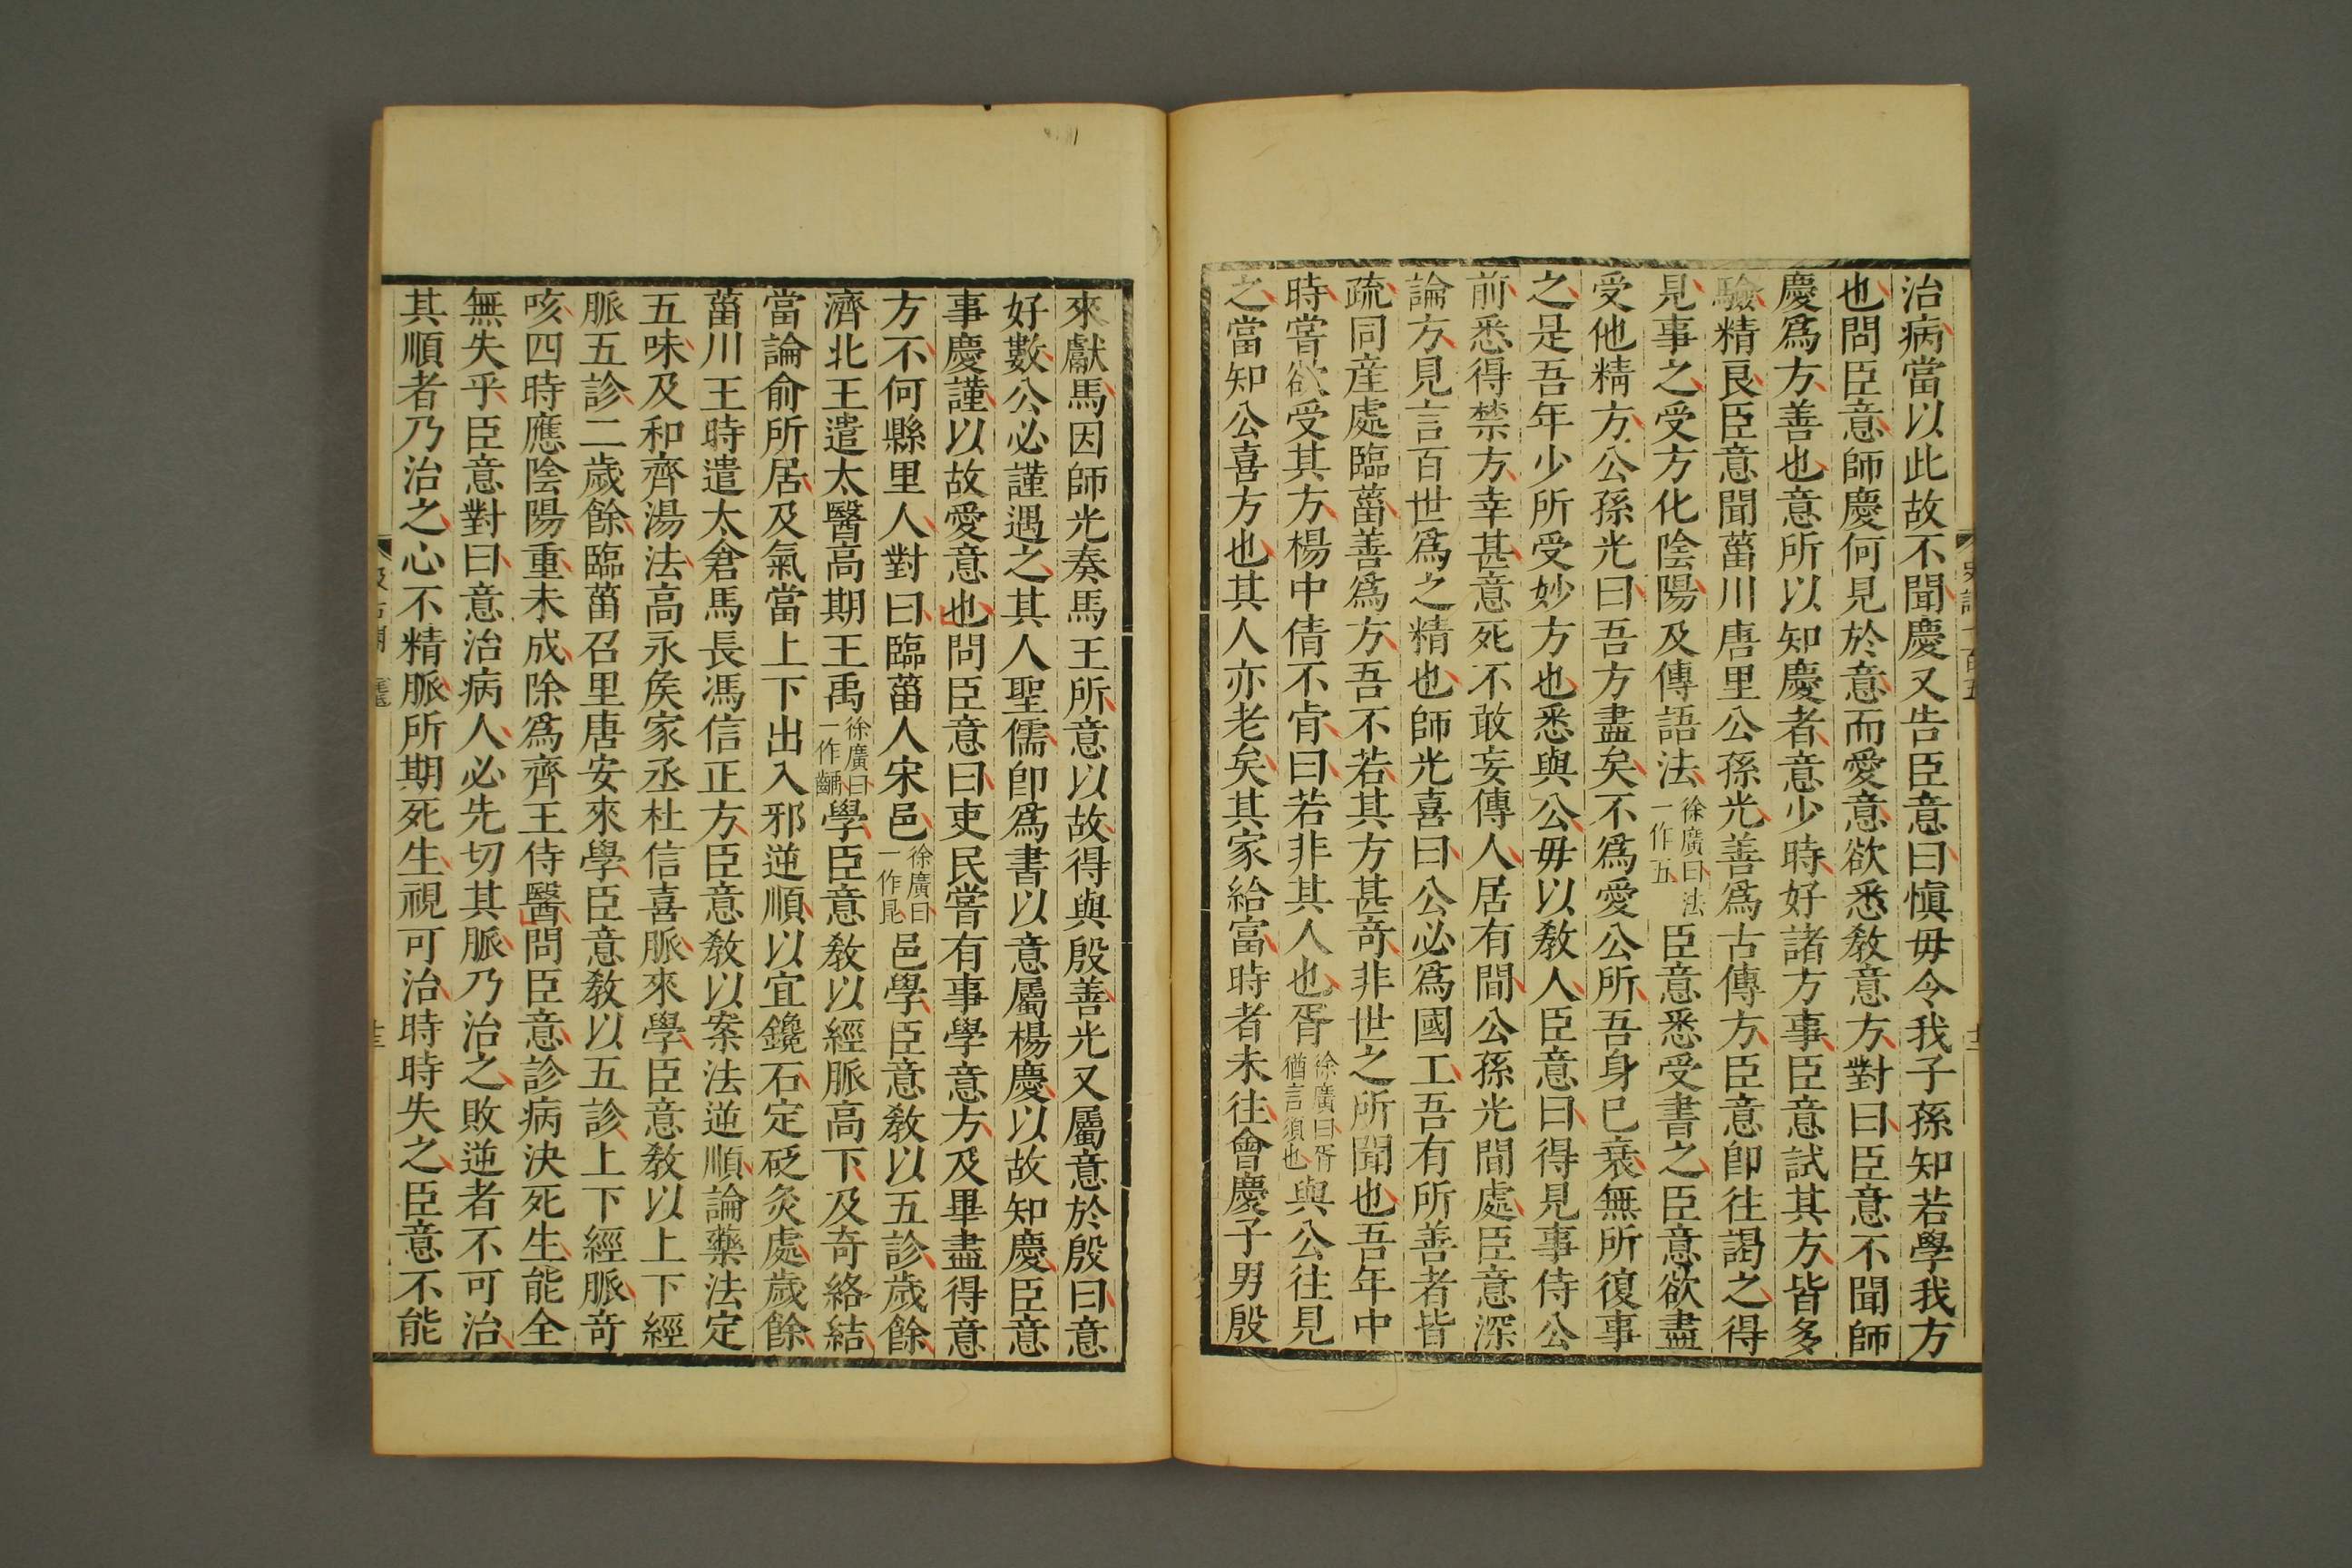 治病當以此故不聞慶又告臣意曰愼毋令我子孫知若學我方
也問臣意師慶何見於意而愛意欲悉敎意方對曰臣意不聞師
慶爲方善也意所以知慶者意少時好諸方事臣意試其方皆多
驗精良臣意聞菑川唐里公孫光善爲古傳方臣意卽往謁之得
見事之受方化陰陽及傳語法徐廣曰法一作五臣意悉受書之臣意欲盡
受他精方公孫光曰吾方盡矣不爲愛公所吾身已衰無所復事
之是吾年少所受妙方也悉與公毋以敎人臣意曰得見事侍公
前悉得禁方幸甚意死不敢妄傳人居有間公孫光間處臣意深
論方見言百世爲之精也師光喜曰公必爲國工吾有所善者皆
疏同產處臨菑善爲方吾不若其方甚奇非世之所聞也吾年中
時嘗欲受其方楊中倩不肯曰若非其人也胥徐廣曰胥猶言須也與公往見
之當知公喜方也其人亦老矣其家給富時者未往會慶子男殷
來獻馬因師光奏馬王所意以故得與殷善光又屬意於殷曰意
好數公必謹遇之其人聖儒卽爲書以意屬楊慶以故知慶臣意
事慶謹以故愛意也問臣意曰吏民嘗有事學意方及畢盡得意
方不何縣里人對曰臨菑人宋邑徐廣曰一作昆邑學臣意敎以五診歲餘
濟北王遣太醫高期王禹徐廣曰一作齲學臣意敎以經脈高下及奇絡結
當論俞所居及氣當上下出入邪逆順以宜鑱石定砭灸處歲餘
菑川王時遣太倉馬長馮信正方臣意敎以案法逆順論藥法定
五味及和齊湯法高永矦家丞杜信喜脈來學臣意敎以上下經
脈五診二歲餘臨菑召里唐安來學臣意敎以五診上下經脈奇
咳四時應陰陽重未成除爲齊王侍醫問臣意診病決死生能全
無失乎臣意對曰意治病人必先切其脈乃治之敗逆者不可治
其順者乃治之心不精脈所期死生視可治時時失之臣意不能